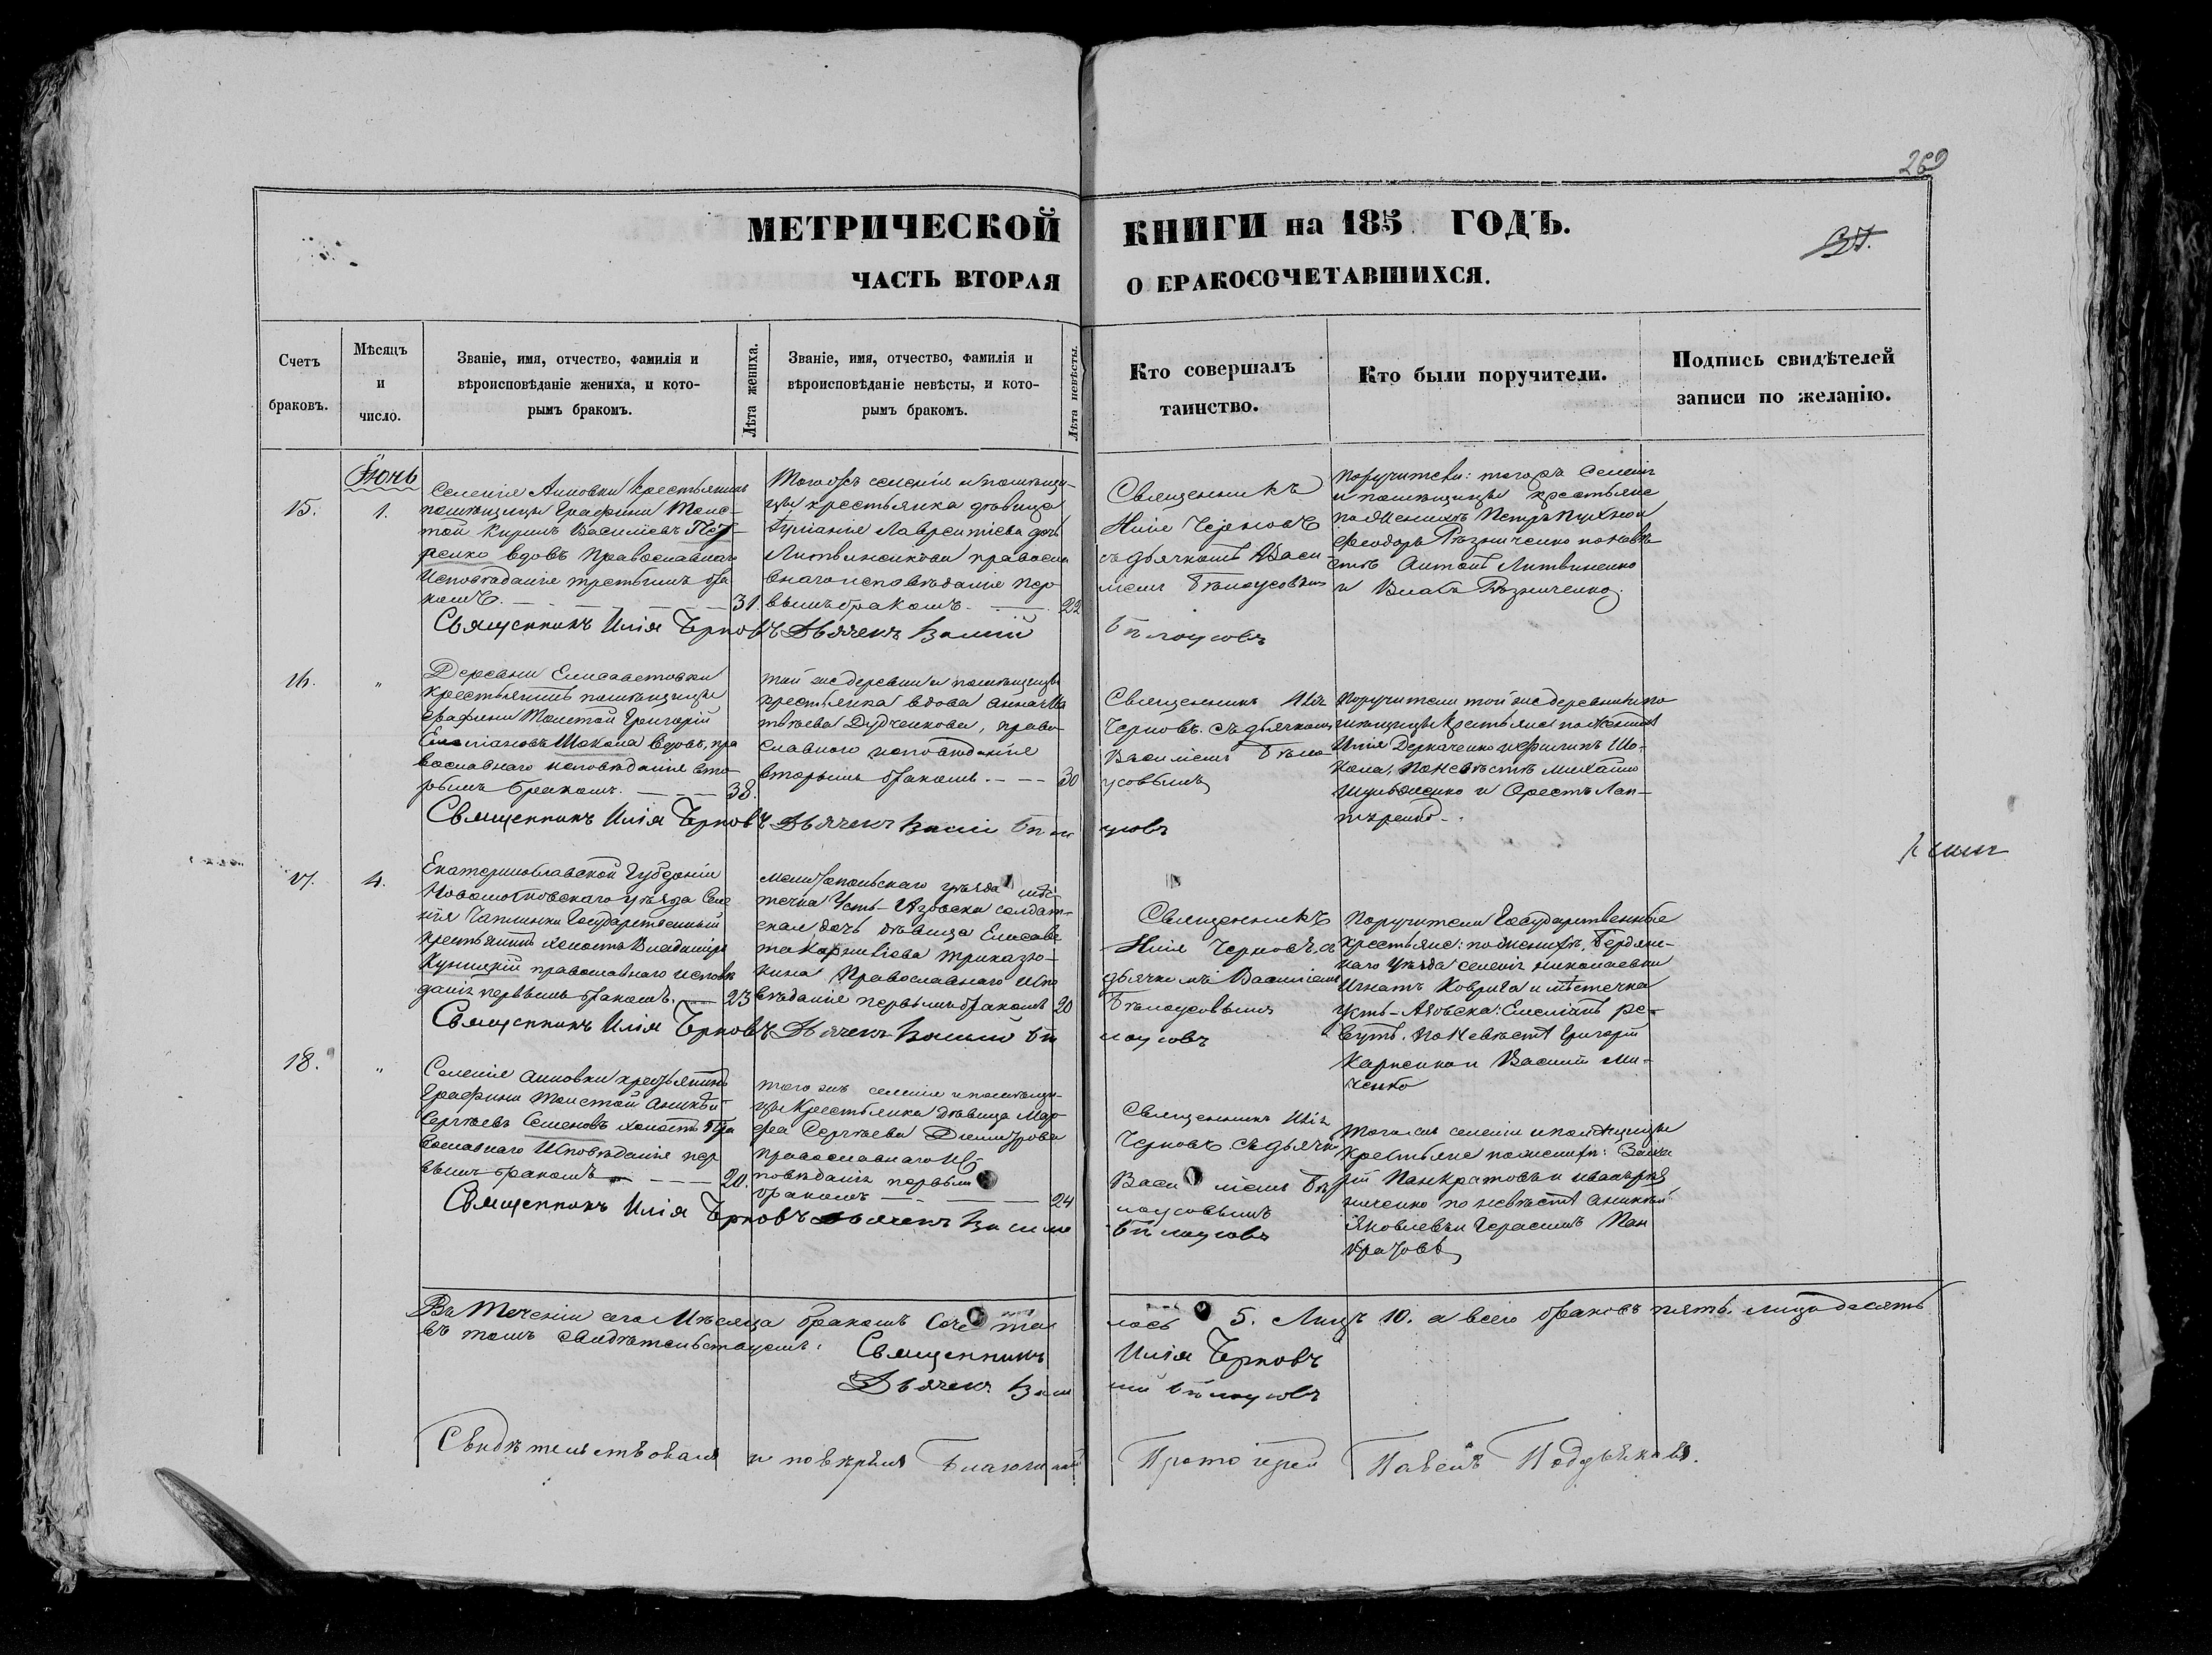 269
МЕТРИЧЕСКОЙ КНИГИ на 185 ГОДЪ.
37.
ЧАСТЬ ВТОРАЯ О ЕРАКОСОЧЕТАВШИХСЯ.
Счетъ
браковъ.
Мѣсяцъ
и
число.
Званіе, имя, отчество, фамилія и
вѣроисповѣданіе жениха, и кото-
рымъ бракомъ.
Лѣта жениха.
Званіе, имя, отчество, фамилія и
вѣроисповѣданіе невѣсты, и кото-
рымъ бракомъ.
Лѣта невѣсты.
Кто совершалъ
таинство.
Кто были поручители.
Подпись свидѣтелей
записи по желанію.
Іюнь
15.
1.
Селенія Анновки крестьянинъ
помѣщицы Графини Толс-
той Кирилъ Василіевъ
вдовъ Православнаго
Исповѣданія третьимъ бра
комъ. 31.
селенія и помѣщи-
цы крестьянка дѣвица
Лаврентіева дочь
православ
внаго исповѣданія пер
вымъ бракомъ. 22
Священникъ
Илія Черновъ
съ дьячкомъ Васи-
ліемъ Бѣлоусовымъ
Поручители: тогожъ селенія
и помѣщицы крестьяне
по женихѣ Петръ
Феодоръ Рѣзниченко по невѣ
стѣ Антонъ Литвиненко
и Власъ Рѣзниченко.
Священникъ Илія Черновъ Дьячекъ Василій Бѣлоусовъ
16.
"
Деревни Елисаветовки
Крестьянинъ помѣщицы
Графини Толстой Григорій
Емеліановъ Шокола вдовъ, пра
вославнаго исповѣданія вто-
рымъ бракомъ. 38.
той же деревни и помѣщицы
крестьянка вдова Анна Ма
твѣева Дудченкова, право-
славнаго исповѣданія
вторымъ бракомъ. 30
Священникъ Илія
Черновъ съ дьячкомъ
Василіемъ Бѣло-
усовымъ
Поручители той же деревни и по
мѣщицы крестьяне по женихѣ
Илія Деркаченко и Филипъ Шо-
кола, по невѣстѣ Михайло
и Орестъ Лап-
Священникъ Илія Черновъ Дьячекъ Василій Бѣлоусовъ
17.
4.
Екатеринославской Губерніи
Новомосковскаго уѣзда Селе
нія Чаплинки Государственный
крестьянинъ холостъ Владиміръ
православнаго исповѣ
данія первымъ бракомъ. 23
Мелитопольскаго уѣзда мѣс
течка Усть-Азовска солдат-
ская дочь дѣвица Елисаве
та
Православнаго испо
вѣданія первымъ бракомъ 20
Священникъ
Илія Черновъ съ
дьячкомъ Василіемъ
Бѣлоусовымъ
Поручители Государственные
крестьяне: по женихѣ, Бердян-
скаго уѣзда селенія Николаевки
Игнатъ Коврига и мѣстечка
Усть-Азовска: Емеліанъ Ре-
вутъ. По невѣстѣ Григорій
Карпенко и Василій Ми-
ченко
Священникъ Илія Черновъ Дьячекъ Василій Бѣлоусовъ
18.
"
Селенія Анновки крестьянинъ
Графини Толстой Аникѣй
Сергѣевъ Семеновъ холостъ Пра
вославнаго Исповѣданія пер
вымъ бракомъ 20.
того жъ селенія и помѣщи-
цы крестьянка дѣвица Мар-
фа Сергѣева Димитрова
православнаго Ис
повѣданія первымъ
бракомъ 24
Священникъ Илія
Черновъ съ дьячко
Василіемъ Бѣ
лоусовымъ
Того же селенія и помѣщицы
крестьяне по женихѣ: Заха
рій Панкратовъ и Иванъ
по невѣстѣ Аникѣй
Яковлевъ и Герасимъ Пан
кратовъ
Священникъ Илія Черновъ Дьячекъ Василій Бѣлоусовъ
Въ теченіи сего Мѣсяца бракомъ сочеталось 5. Лицъ 10. а всего браковъ пять. лицъ десять
въ томъ свидѣтельствуемъ: Священникъ Илія Черновъ
Дьячекъ Василій Бѣлоусовъ
Свидѣтельствовалъ и повѣрялъ Благочинный Протоіерей Павелъ